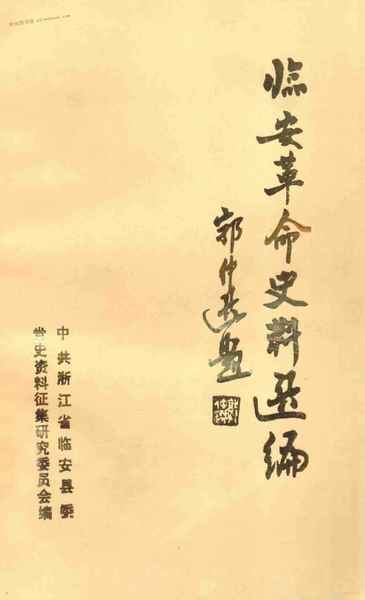 临安革命史料选编
郭仲选题
中共浙江省临安县委
党史资料征集研究委员会编